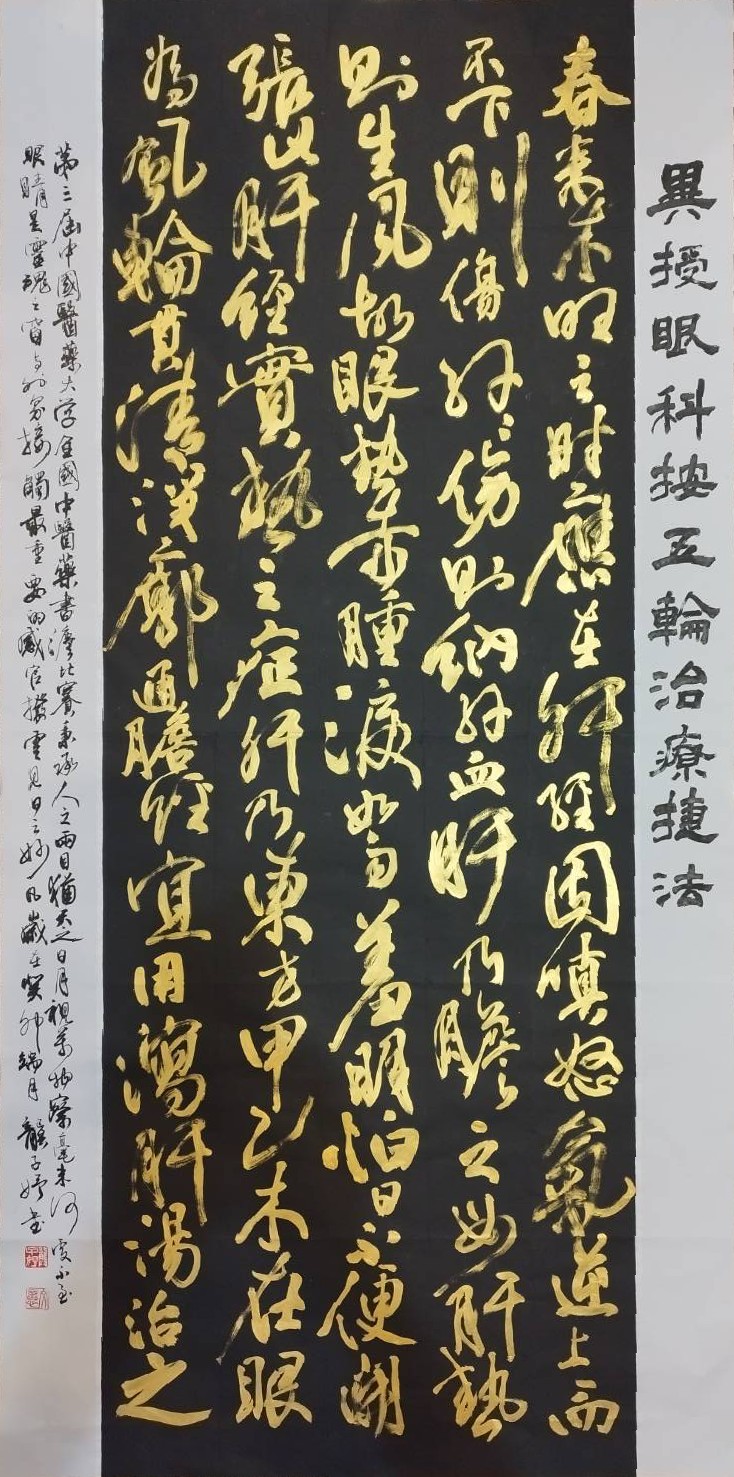 異授眼科按五輪治療捷法
春來木旺之時應在肝經因嗔怒氣逆上而
不下則傷肝肝傷則納肝血肝乃膽之母肝熱
則生風故眼熱赤腫淚如羞明怕日不便開
張此肝經實熱之症肝乃東方甲乙木在眼
為風輪其清淨廓通膽經宜用瀉肝湯治之
第三屆中國醫藥大学全國中醫藥書法比賽秉承人之兩目猶天之日月視萬物察毫末何處不至
眼睛是靈魂之窗与外界接觸最重要的感官撥雲見日之妙凡歲在癸卯端月龍子婷書